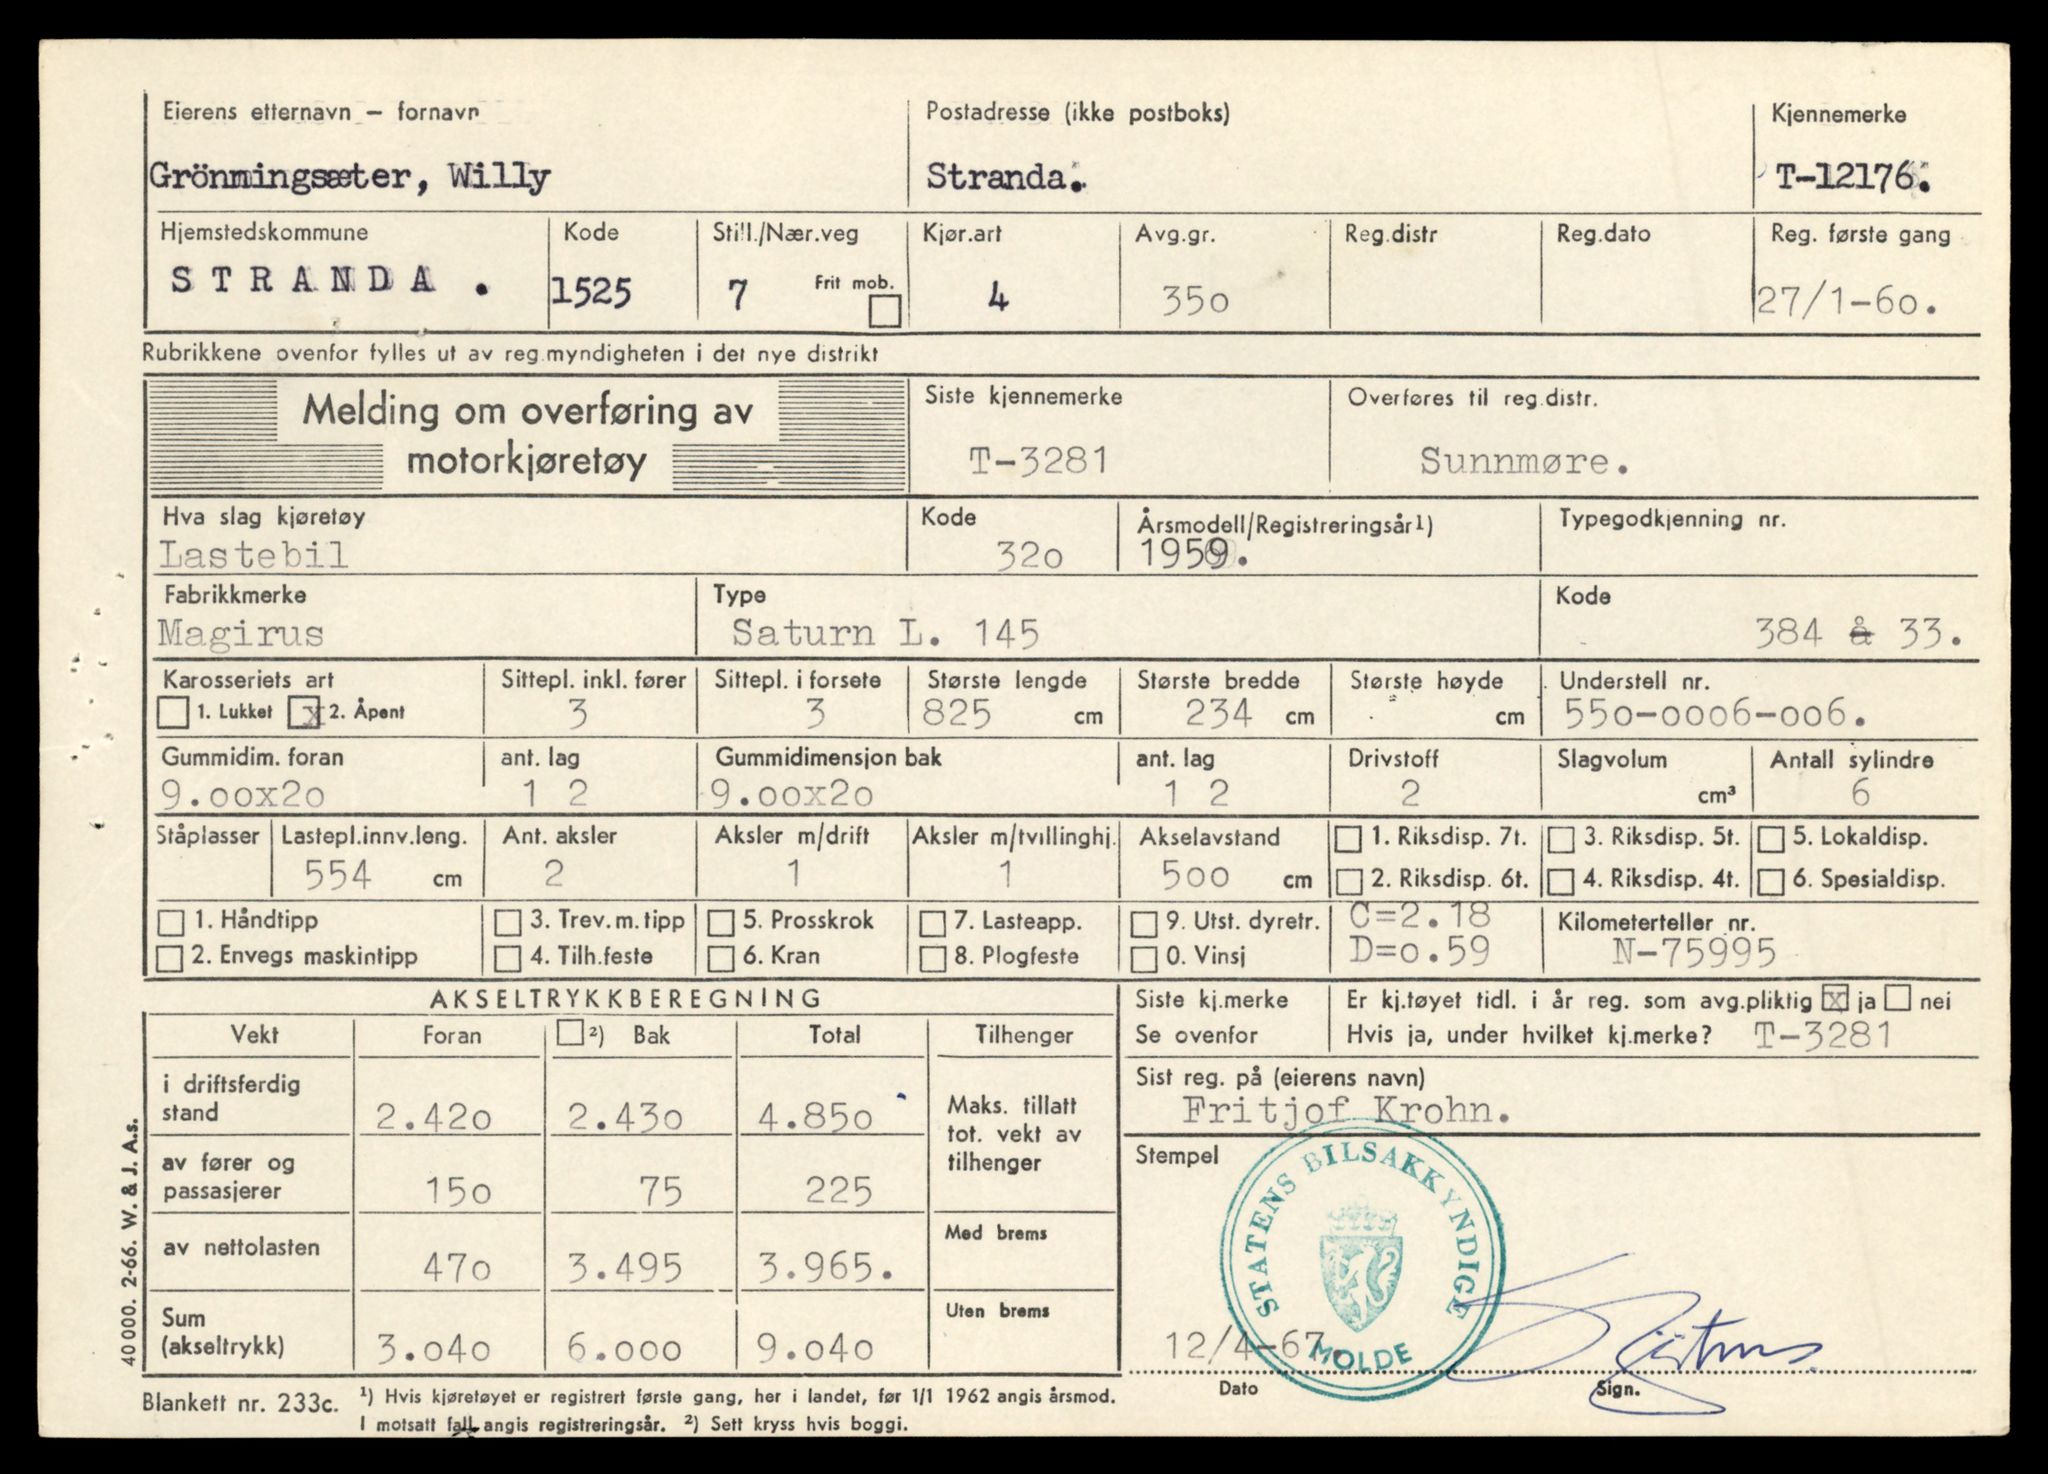 Eierens etternavn – fornavn
Postadresse (ikke postboks)
Kjennemerke
Grönningsæter, Willy
Stranda.
T-12176.
Hjemstedskommune
Kode
Still./Nær.veg
Kjør.art
Avg.gr.
Reg.distr
Reg.dato
Reg. første gang
STRANDA.
1525
7
Frit mob.
4
350
27/1-60.
Rubrikkene ovenfor fylles ut av reg.myndigheten i det nye distrikt
Melding om overføring av
motorkjøretøy
Siste kjennemerke
Overføres til reg.distr.
T-3281
Sunnmøre.
Hva slag kjøretøy
Kode
Årsmodell/Registreringsår1)
Typegodkjenning nr.
Lastebil
320
1959.
Fabrikkmerke
Type
Kode
Magirus
Saturn L. 145
384 å 33.
Karosseriets art
Sittepl. inkl. fører
Sittepl. i forsete
Største lengde
Største bredde
Største høyde
Understell nr.
1. Lukket x 2. Åpent
3
3
825 cm
234 cm
cm
550-0006-006.
Gummidim. foran
ant. lag
Gummidimensjon bak
ant. lag
Drivstoff
Slagvolum
Antall sylindre
9.00x20
12
9.00x20
12
2
cm³
6
Ståplasser
Lastepl.innv.leng.
Ant. aksler
Aksler m/drift
Aksler m/tvillinghj.
Akselavstand
1. Riksdisp. 7t.
3. Riksdisp. 5t.
5. Lokaldisp.
554 cm
2
1
1
500 cm
2. Riksdisp. 6t.
4. Riksdisp. 4t.
6. Spesialdisp.
1. Håndtipp
3. Trev. m. tipp
5. Prosskrok
7. Lasteapp.
9. Utst. dyretr.
C=2.18
Kilometerteller nr.
2. Envegs maskintipp
4. Tilh.feste
6. Kran
8. Plogfeste
0. Vinsj
D=0.59
N-75995
AKSELTRYKKBEREGNING
Siste kj.merke
Er kj.tøyet tidl. i år reg. som avg.pliktig x ja nei
Vekt
Foran
2) Bak
Total
Tilhenger
Se ovenfor
Hvis ja, under hvilket kj.merke? T-3281
i driftsferdig
stand
2.420
2.430
4.850
Maks. tillatt
tot. vekt av
tilhenger
Sist reg. på (eierens navn)
Fritjof Krohn.
av fører og
passasjerer
150
75
225
Stempel
STATENS BILSAKKYNDIGE
MOLDE
av nettolasten
470
3.495
3.965.
Med brems
Sum
(akseltrykk)
3.040
6.000
9.040
Uten brems
12/4-67.
Dato
Sign.
40000. 2-66. W. & J. A.s.
Blankett nr. 233c.
1) Hvis kjøretøyet er registrert første gang, her i landet, før 1/1 1962 angis årsmod.
I motsatt fall angis registreringsår. 2) Sett kryss hvis boggi.